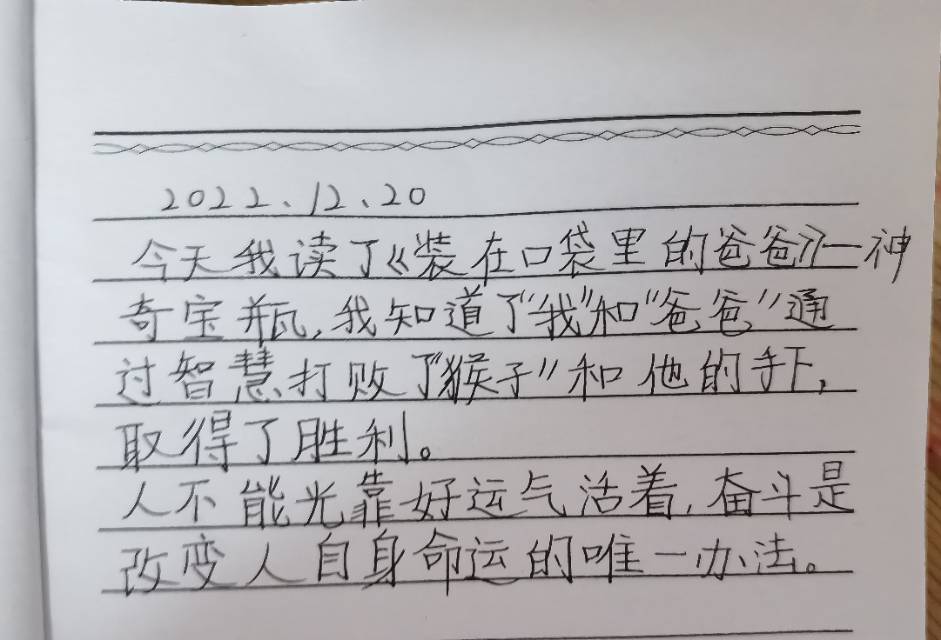 2022、12、20
今天我读了《装在口袋里的爸爸》一神
奇宝瓶,我知道了“我”和“爸爸”通
过智慧打败了“猴子”和他的手下,
取得了胜利。
人不能光靠好运气活着,奋斗是
改变人自身命运的唯一办法。